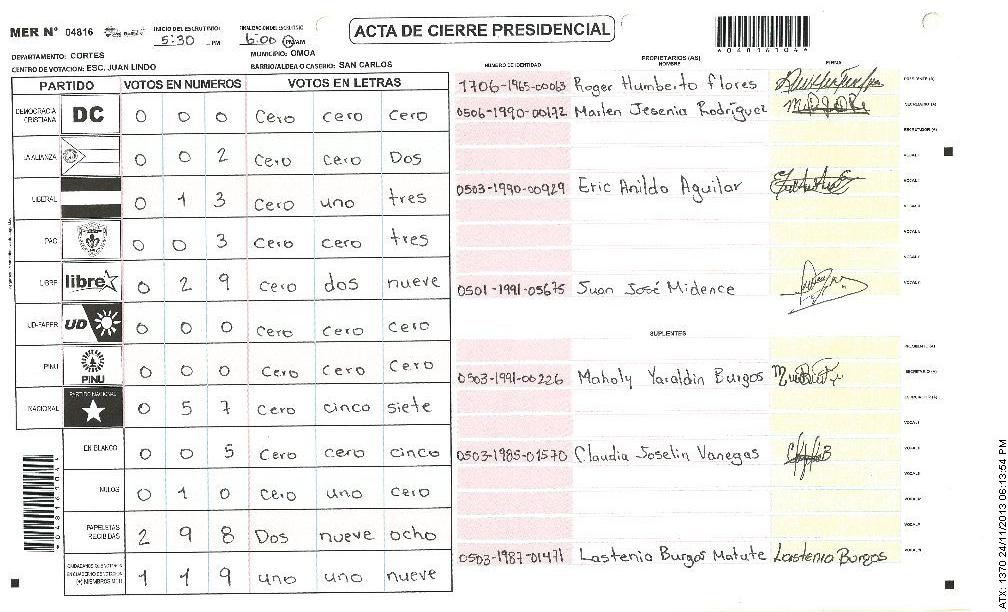 MER Nº 04816
INICIO DEL ESCRUTINIO: 5:30 PM
FINALIZACION DEL ESCRUTINIO 6:00 PM/AM
ACTA DE CIERRE PRESIDENCIAL
DEPARTAMENTO: CORTES
MUNICIPIO: OMOA
CENTRO DE VOTACION: ESC. JUAN LINDO
BARRIO/ALDEA O CASERIO: SAN CARLOS
PARTIDO VOTOS EN NUMEROS VOTOS EN LETRAS
DEMOCRACIA CRISTIANA DC 0 0 0 Cero cero Cero
LA ALIANZA 0 0 2 Cero Cero Dos
LIBERAL 0 1 3 Cero uno tres
PAC 0 0 3 Cero Cero tres
LIBRE libre 0 2 9 Cero dos nueve
UD-FAPER UD 0 0 0 Cero Cero Cero
PINU PINU 0 0 0 Cero Cero Cero
NACIONAL PARTIDO NACIONAL 0 5 7 Cero cinco siete
EN BLANCO 0 0 5 Cero cero cinco
NULOS 0 1 0 Cero uno Cero
PAPELETAS RECIBIDAS 2 9 8 Dos nueve ocho
1 1 9 uno uno nueve
NUMERO DE IDENTIDAD
PROPIETARIOS (AS)
NOMBRE
FIRMA
1706-1965-00063 Roger Humberto flores PRESIDENTE (A)
0506-1990-00172 Marlen Jesenia Rodríguez SECRETARIO (A)
ESCRUTADOR (A)
VOCAL I
0503-1990-00929 Eric Anildo Aguilar
0501-1991-05675 Juan José Midence
SUPLENTES
PRESIDENTE (A)
0503-1991-00226 Maholy Yaraldin Burgos SECRETARIO (A)
0503-1985-01570 Claudia Joselin Vanegas
0503-1987-01471 Lastenio Burgos Matute Lastenio Burgos
ATX: 1370 24/11/2013 06:13:54 PM